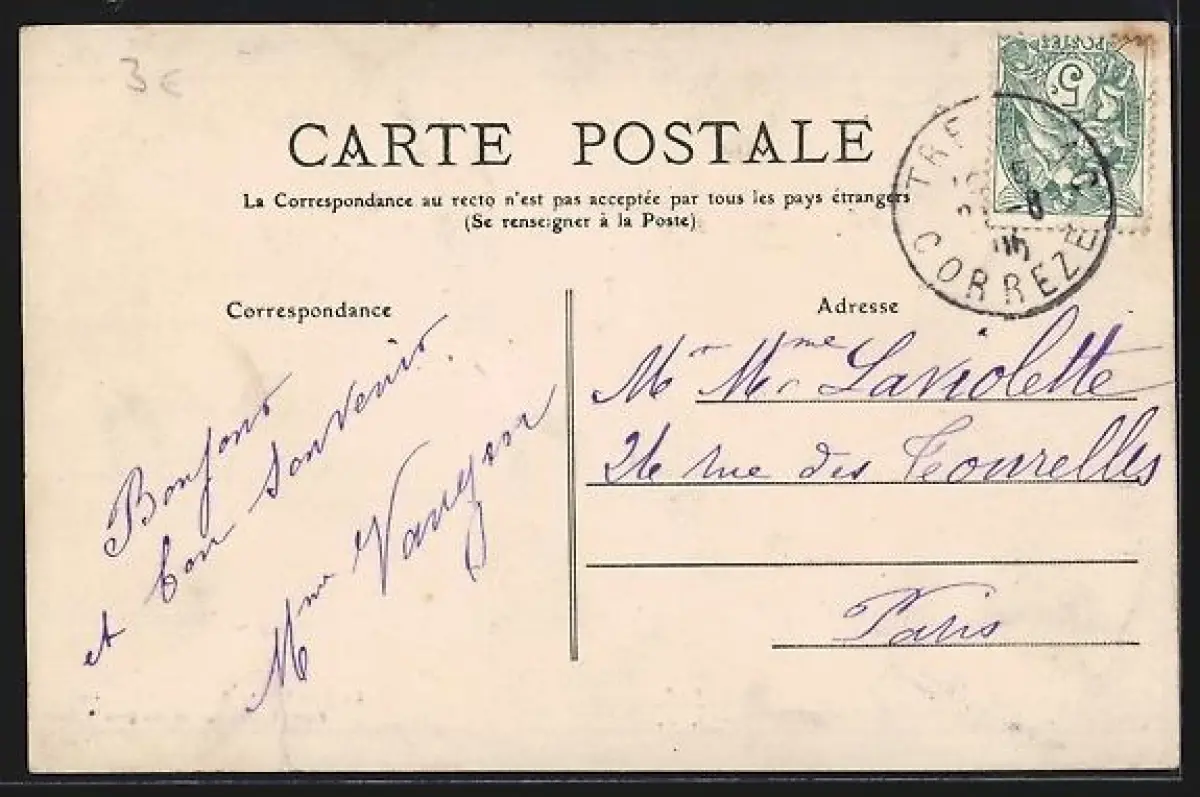 3 €
CARTE POSTALE
La Correspondance au recto n'est pas acceptée par tous les pays étrangers
(Se renseigner à la Poste)
POSTES
5c
TRE
CORREZE
Correspondance
Bonjour
et bon souvenir
Mme
Adresse
Mr Mme Laviolette
rue des Tourelles
Paris